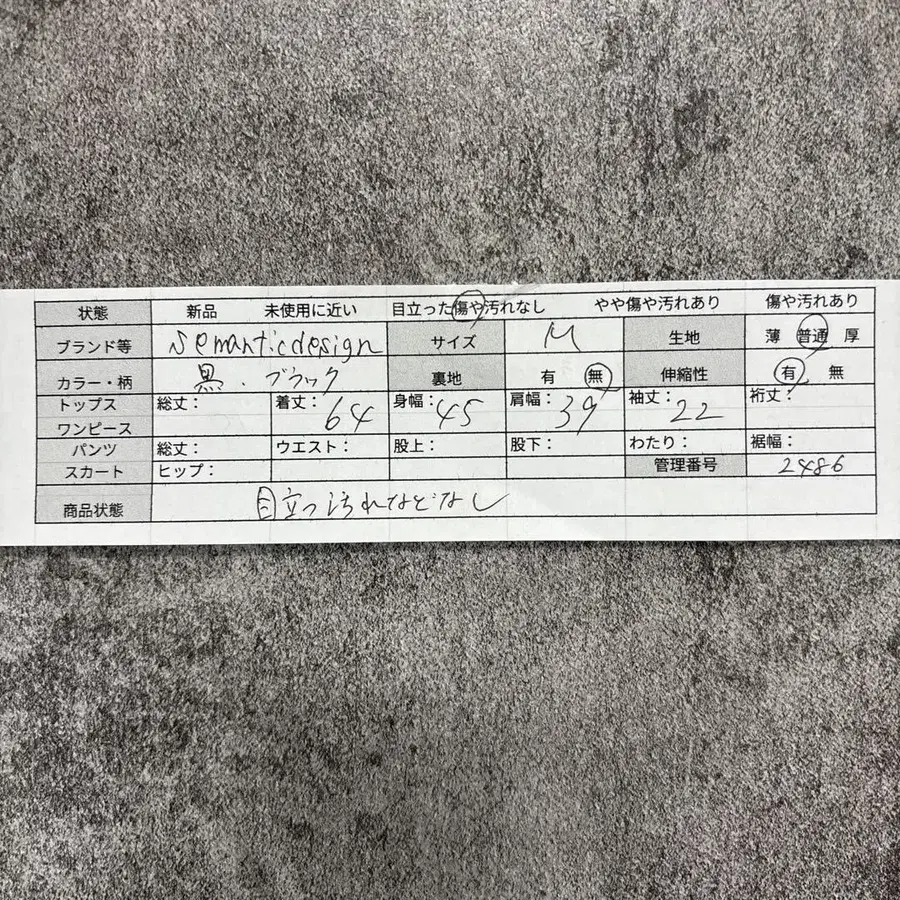 状態 新品 未使用に近い 目立った傷や汚れなし やや傷や汚れあり 傷や汚れあり
ブランド等 semanticdesign サイズ M 生地 薄 普通 厚
カラー・柄 黒．ブラック 裏地 有 無 伸縮性 有 無
トップス ワンピース 総丈： 着丈：64 身幅：45 肩幅：39 袖丈：22 裄丈：
パンツ 総丈： ウエスト： 股上： 股下： わたり： 裾幅：
スカート ヒップ： 管理番号 2486
商品状態 目立つ汚れなどなし